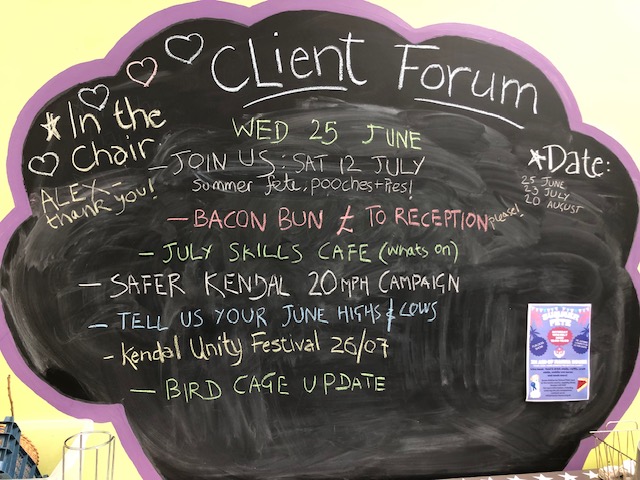 CLient Forum
*In the
Chair
-ALEX-
thank you!
WED 25 JUNE
- JOIN US: SAT 12 JULY
Summer fete, pooches + pies!
- BACON BUN £ TO RECEPTION please!
- JULY SKILLS CAFE (whats on)
- SAFER KENDAL 20 MPH CAMPAIGN
- TELL US YOUR JUNE HIGHS & LOWS
- Kendal Unity Festival 26/07
- BIRD CAGE UPDATE
*Date:
25 JUNE
23 JULY
20 AUGUST
SUMMER
FETE